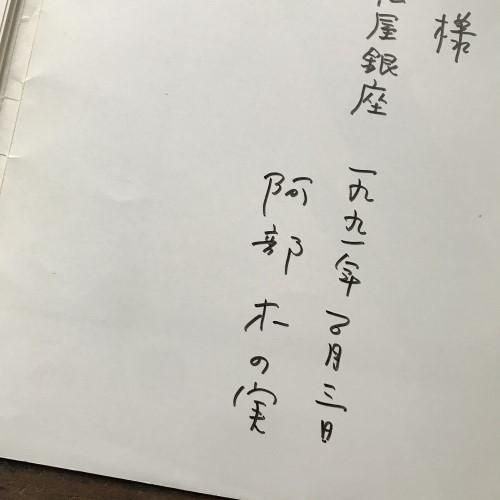 様
屋銀座 一九九一年 月三日
阿部 木の実